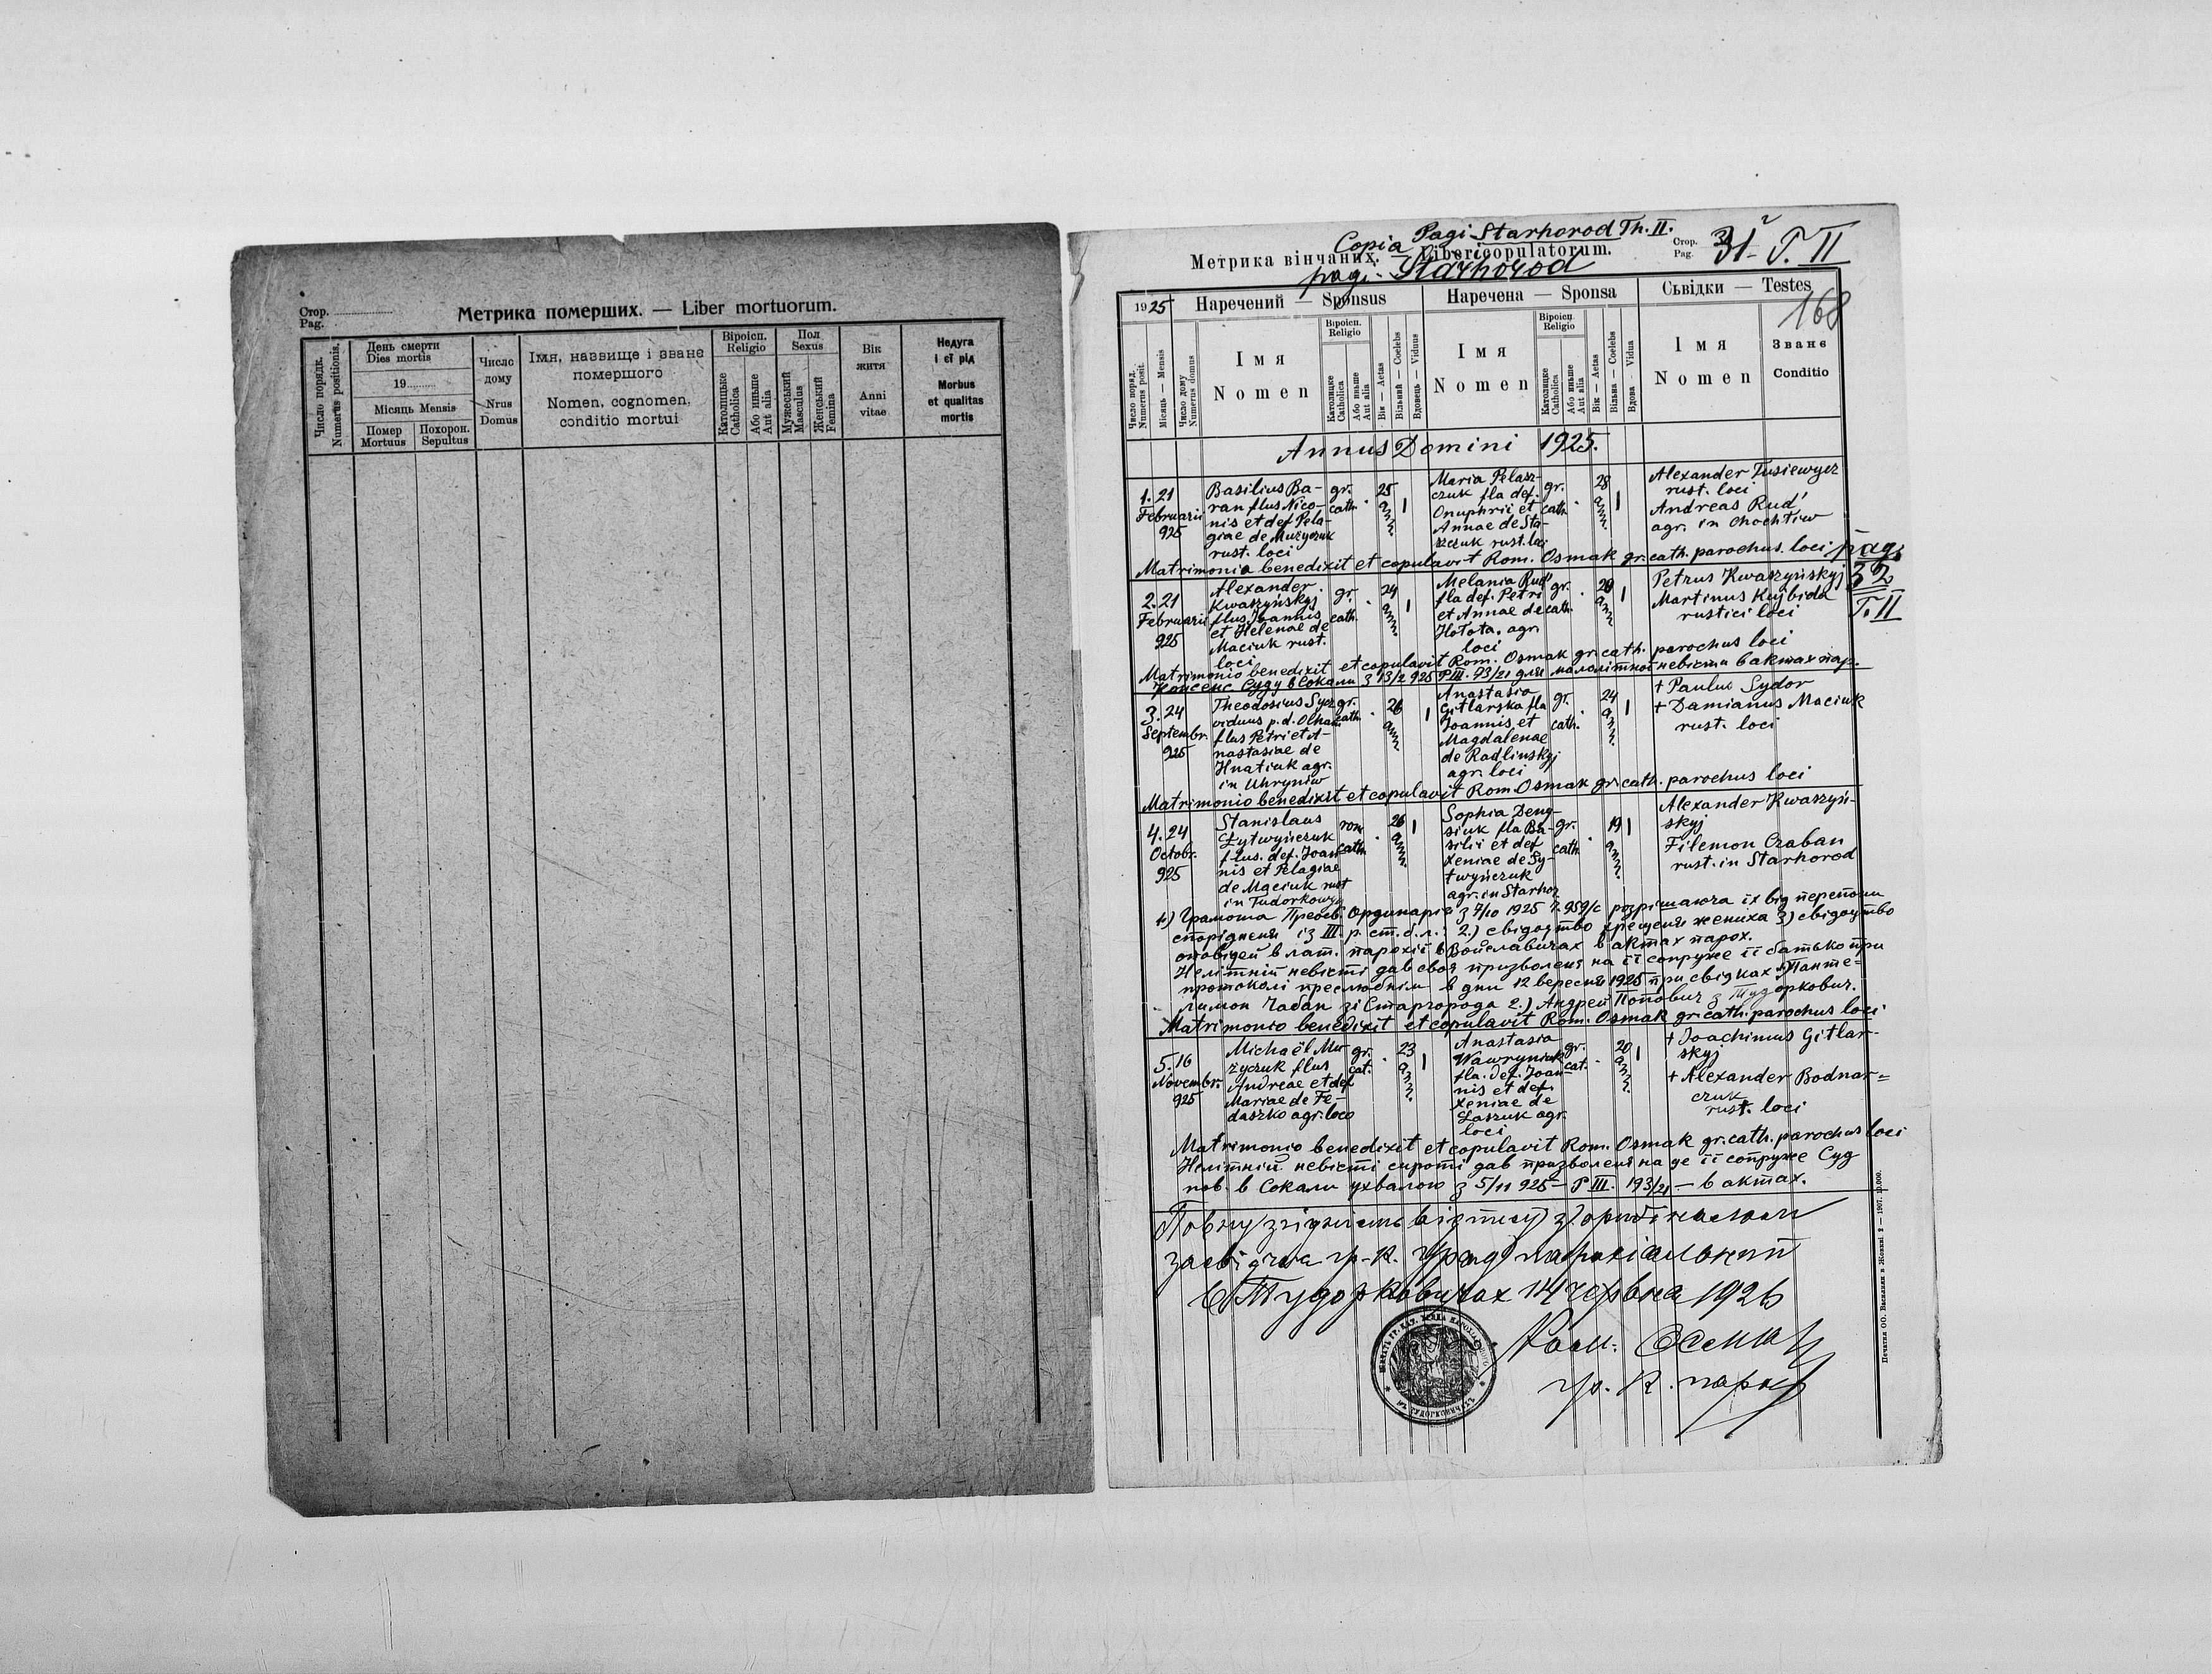 Стор.
Pag.
Метрика померших. — Liber mortuorum.
Число порядк.
Numerus positionis.
День смерти
Dies mortis
19
Місяць Mensis
Помер
Mortuus
Похорон.
Sepultus
Число
дому
Nrus
Domus
Імя, назвище і званє
помершого
Nomen, cognomen,
conditio mortui
Віроісп.
Religio
Католицьке
Catholica
Або иньше
Aut alia
Пол
Sexus
Мужеський
Masculus
Женський
Femina
Вік
житя
Anni
vitae
Недуга
і єї рід
Morbus
et qualitas
mortis
Copia Pagi Starhorod Th. II.
Метрика вінчаних. — Liber copulatorum.
pagi Starhorod
Стор.
Pag.
31 T. II
168
1925
Наречений — Sponsus
Наречена — Sponsa
Сьвідки — Testes
Число поряд.
Numerus posit.
Місяць — Mensis
Число дому
Numerus domus
Імя
Nomen
Віроісп.
Religio
Католицке
Catholica
Або иньше
Aut alia
Вік — Aetas
Вільний — Coelebs
Вдовець — Viduus
Імя
Nomen
Віроісп.
Religio
Католицке
Catholica
Або иньше
Aut alia
Вік — Aetas
Вільна — Coelebs
Вдова — Vidua
Імя
Nomen
Званє
Conditio
Annus Domini 1925.
1. 21
Februarii
925
Basilius Ba-
ran flus Nico-
nis et def Pela-
giae de Mużyczuk
rust. loci
gr.
cath.
25
Maria Pelasz-
czuk fla def.
Onuphrii et
Annae de Sta-
szczuk rust. loci
gr.
cath.
28
Alexander Tusiewycz
rust. loci
Andreas Rud'
agr. in Chochtiw
Matrimonia benedixit et copulavit Rom. Osmak gr. cath. parochus loci
pag.
32
T. II
2. 21
Februarii
925
Alexander
Kwaszyńskyj
flus Joannis
et Helenae de
Maciuk rust.
loci
gr.
cath.
24
Melania Rud'
fla def. Petri
et Annae de
Hołota. agr.
loci
gr.
cath.
20
Petrus Kwaszyńskyj
Martinus Kujbida
rustici loci
Matrimonio benedixit et copulavit Rom. Osmak gr. cath. parochus loci
Консенс Суду в Сокали з 13/2 925 P III. 73/21 для малолїтної невісти в актах пар.
3. 24
Septembr.
925
Theodosius Sycz
viduus p. d. Olham
flus Petri et A-
nastasiae de
Hnatiuk agr.
in Uhryniw
gr.
cath.
26
Anastasia
Gitlarska fla
Joannis et
Magdalenae
de Radlinskyj
agr. loci
gr.
cath.
24
+ Paulus Sydor
+ Damianus Maciuk
rust. loci
Matrimonio benedixit et copulavit Rom. Osmak gr. cath. parochus loci
4. 24
Octobr.
925
Stanislaus
Łytwyńczuk
flus. def. Joan-
nis et Pelagiae
de Maciuk rust
in Tudorkowy
rom
cath.
26
Sophia Deng-
siuk fla Ba-
silii et def
Xeniae de Ły-
twyńczuk
agr. in Starhor
gr.
cath.
19
Alexander Kwaszyń-
skyj
Filemon Czaban
rust. in Starhorod
1) Грамота Преосв. Ординаріа з 7/10 1925 Ч. 959/с розрішаюча їх від перепони
спорідненя із III. р. ст. б. л.; 2.) свідоцтво хрещеня жениха 3) свідоцтво
оповідей в лат. парохії в Войславичах в актах парох.
Нелїтній невісті дав своя призволеня на її сопруже її батько при
протоколі преслюбнім в дни 12 вересня 1925 при свідках 1) Панте=
лимон Чабан зі Старгорода 2.) Андрей Попович з Тудоркович.
Matrimonio benedixit et copulavit Rom. Osmak gr. cath. parochus loci
5. 16
Novembr.
925
Michaël Mu-
życzuk flus
Andreae et def
Mariae de Fe-
daszko agr. loco
gr.
cat.
23
Anastasia
Wawryniuk
fla. def. Joan-
nis et def.
Xeniae de
Łaszuk agr.
loci
gr.
cat.
20
+ Joachimus Gitlar-
skyj
+ Alexander Bodnar=
czuk
rust. loci
Matrimonio benedixit et copulavit Rom. Osmak gr. cath. parochus loci
Нелїтній невісті сироті дав призволеня на це її сопруже Суд
пов. в Сокали ухвалою з 5/11 925 — P III. 193/21 — в актах.
Повну згідність відпису з оригіналом
засвідчає гр-к. Уряд парохіальний
в Тудорковичах 14 червня 1926
Ром. Осмак
гр. к. парох
Печатня ОО. Василіян в Жовкві 2 — 1907. 10.000.